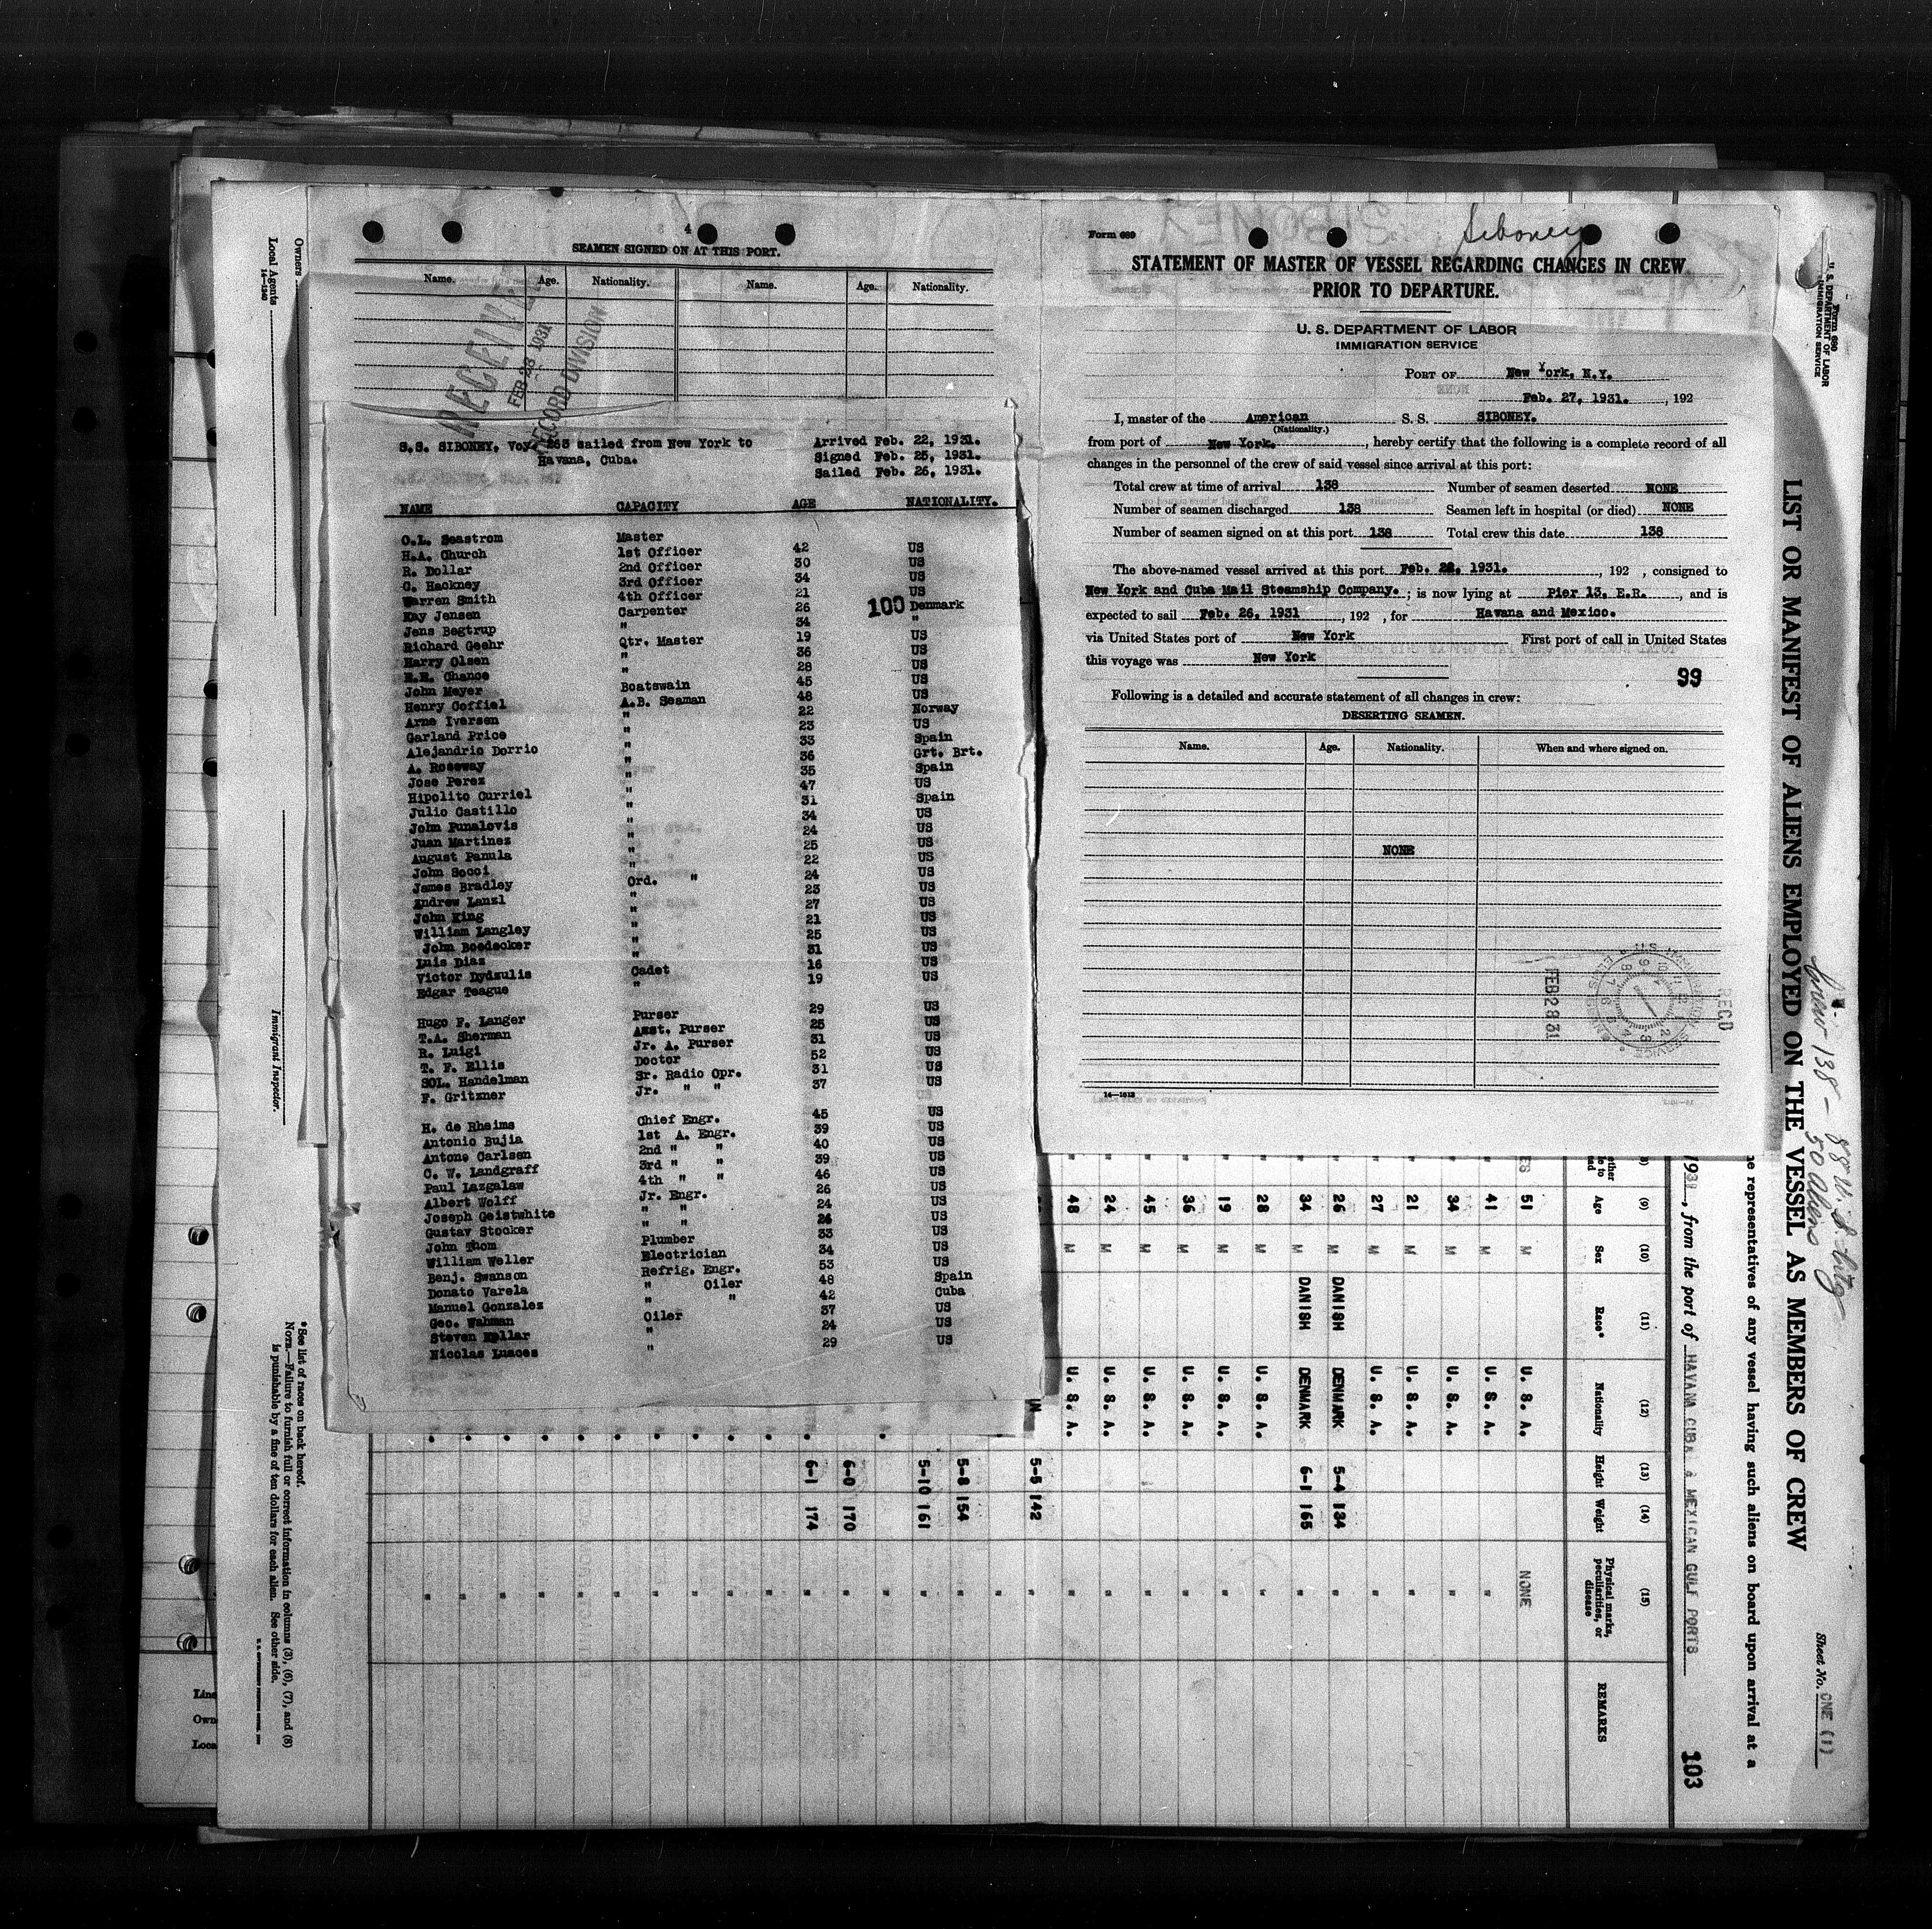 4
SEAMEN SIGNED ON AT THIS PORT.
Name. Age. Nationality. Name. Age. Nationality.
RECEIVED
FEB 28 1931
RECORD DIVISION
S.S. SIBONEY, Voy. 263 sailed from New York to
Havana, Cuba.
Arrived Feb. 22, 1931.
Signed Feb. 25, 1931.
Sailed Feb. 26, 1931.
NAME CAPACITY AGE NATIONALITY.
O.L. Seastrom Master
H.A. Church 1st Officer 42 US
R. Dollar 2nd Officer 30 US
C. Hackney 3rd Officer 34 US
Warren Smith 4th Officer 21 US
Kay Jensen Carpenter 26 100 Denmark
Jens Begtrup " 34 "
Richard Geehr Qtr. Master 19 US
Harry Olsen " 36 US
E.E. Chance " 28 US
John Meyer Boatswain 45 US
Henry Coffiel A.B. Seaman 48 US
Arne Iversen " 22 Norway
Garland Price " 23 US
Alejandrio Dorrio " 33 Spain
A. Roseway " 36 Grt. Brt.
Jose Perez " 35 Spain
Hipolito Curriel " 47 US
Julio Castillo " 31 Spain
John Punalovis " 34 US
Juan Martinez " 24 US
August Panula " 25 US
John Socci " 22 US
James Bradley Ord. " 24 US
Andrew Lanzl " 23 US
John King " 27 US
William Langley " 21 US
John Boedecker " 25 US
Luis Diaz " 31 US
Victor Dydzulis Cadet 16 US
Edgar Teague " 19 US
Hugo F. Langer Purser 29 US
T.A. Sherman Asst. Purser 25 US
R. Luigi Jr. A. Purser 31 US
T. F. Ellis Doctor 52 US
SOL. Handelman Sr. Radio Opr. 31 US
F. Gritzner Jr. " " 37 US
H. de Rheims Chief Engr. 45 US
Antonio Bujia 1st A. Engr. 39 US
Antone Carlsen 2nd " " 40 US
C. W. Landgraff 3rd " " 39 US
Paul Lazgalaw 4th " " 46 US
Albert Wolff Jr. Engr. 26 US
Joseph Geistwhite " " 24 US
Gustav Stocker " " 24 US
John Thom Plumber 33 US
William Weller Electrician 34 US
Benj. Swanson Refrig. Engr. 53 US
Donato Varela " Oiler 48 Spain
Manuel Gonzalez " " 42 Cuba
Geo. Wahman Oiler 37 US
Steven Kollar " 24 US
Nicolas Luaces " 29 US
Form 689
Siboney
STATEMENT OF MASTER OF VESSEL REGARDING CHANGES IN CREW
PRIOR TO DEPARTURE.
U. S. DEPARTMENT OF LABOR
IMMIGRATION SERVICE
PORT OF New York, N.Y.
Feb. 27, 1931. , 192
I, master of the American S. S. SIBONEY.
(Nationality.)
from port of New York. , hereby certify that the following is a complete record of all
changes in the personnel of the crew of said vessel since arrival at this port:
Total crew at time of arrival 138 Number of seamen deserted NONE
Number of seamen discharged 138 Seamen left in hospital (or died) NONE
Number of seamen signed on at this port 138 Total crew this date 138
The above-named vessel arrived at this port Feb. 22, 1931. , 192 , consigned to
New York and Cuba Mail Steamship Company. ; is now lying at Pier 13, E.R. , and is
expected to sail Feb. 26, 1931 , 192 , for Havana and Mexico.
via United States port of New York First port of call in United States
this voyage was New York
99
Following is a detailed and accurate statement of all changes in crew:
DESERTING SEAMEN.
Name. Age. Nationality. When and where signed on.
NONE
FEB 28 31
REC'D
14—1613
Form 680
U. S. DEPARTMENT OF LABOR
IMMIGRATION SERVICE
LIST OR MANIFEST OF ALIENS EMPLOYED ON THE VESSEL AS MEMBERS OF CREW
Sheet No. ONE (1)
Crew - 138 - 88 U. S. Citz
50 Aliens
representatives of any vessel having such aliens on board upon arrival at a
1931, from the port of HAVANA CUBA & MEXICAN GULF PORTS
103
(9) (10) (11) (12) (13) (14) (15)
Age Sex Race* Nationality Height Weight Physical marks, peculiarities, or disease REMARKS
51 M U. S. A. NONE
41 M U. S. A. "
34 M U. S. A. "
21 M U. S. A. "
27 M U. S. A. "
26 M DANISH DENMARK 5-4 134 "
34 M DANISH DENMARK 6-1 165 "
28 M U. S. A. "
19 M U. S. A. "
36 M U. S. A. "
45 M U. S. A. "
24 M U. S. A. "
48 M U. S. A. "
5-5 142 "
5-8 154 "
5-10 161 "
6-0 170 "
6-1 174 "
Owners
Local Agents
14—1240
Immigrant Inspector.
*See list of races on back hereof.
NOTE.—Failure to furnish full or correct information in columns (3), (6), (7), and (8)
is punishable by a fine of ten dollars for each alien. See other side.
Line
Own
Loca